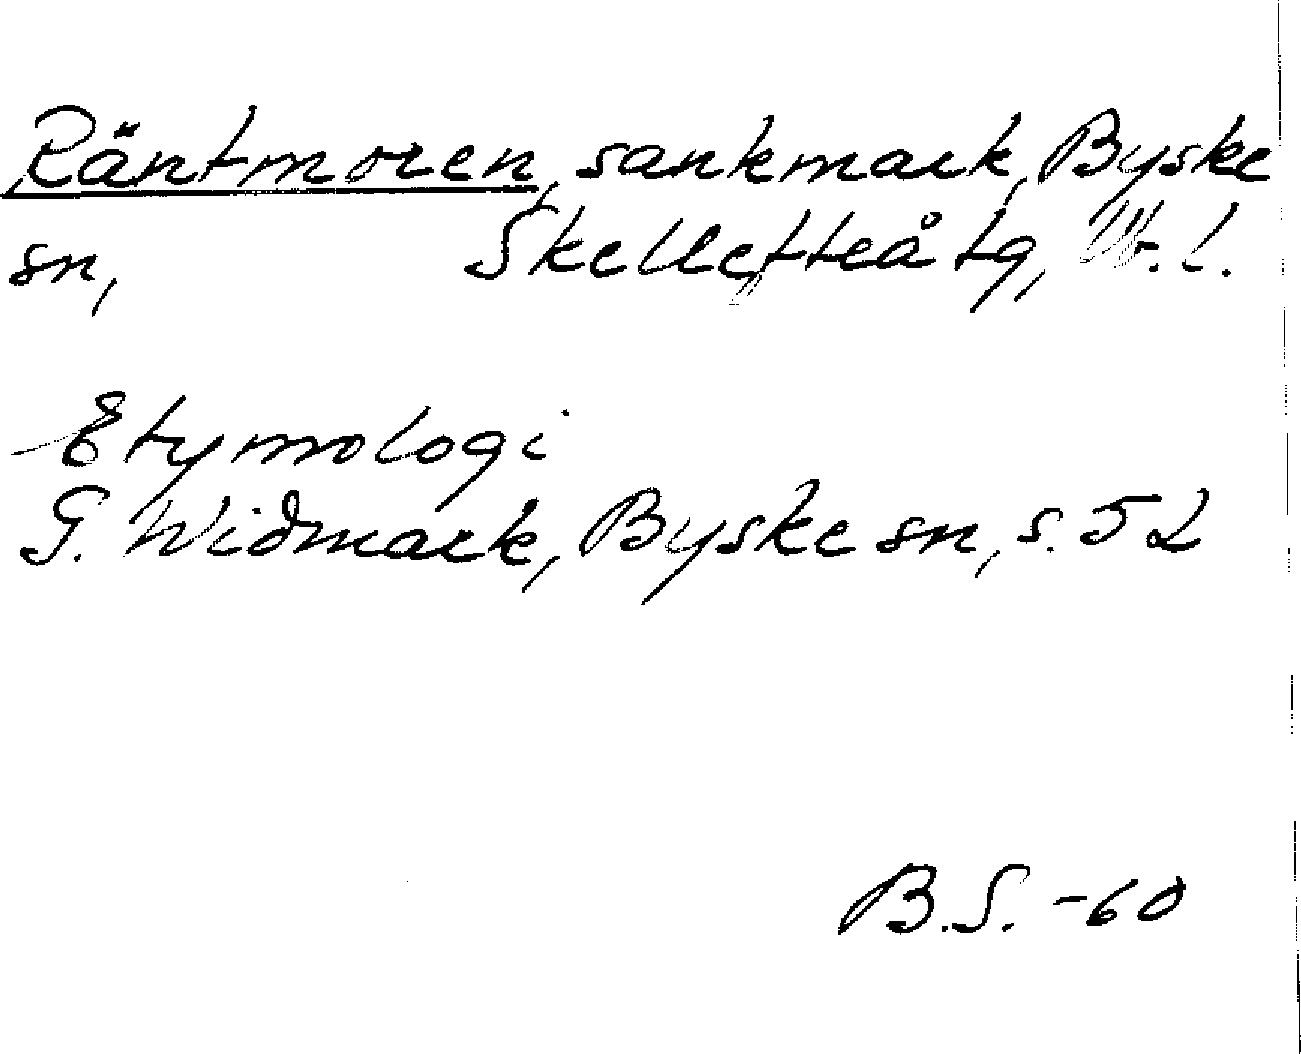 Räntmoren, sankmark, Byske
sn, Skellefteå tg, Vb. l.
Etymologi
G. Widmark, Byske sn, s. 52
B.S. -60